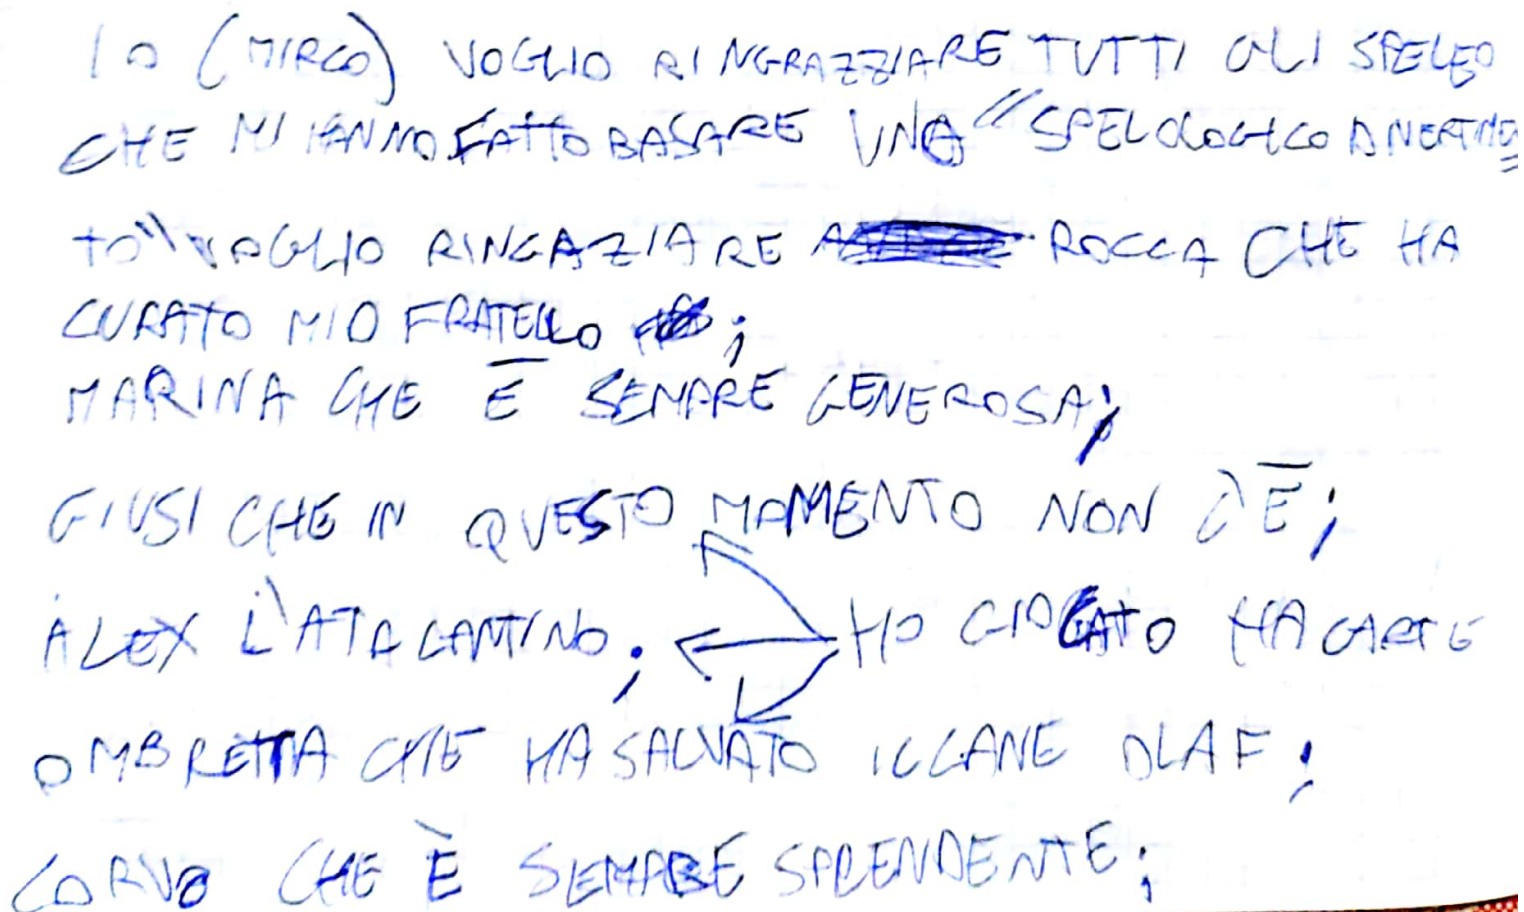 IO (MIRCO) VOGLIO RINGRAZZIARE TUTTI GLI SPELEO
CHE MI HANNO FATTO BASARE UNA "SPELOLOGICO DIVERTIMEN=
TO" VOGLIO RINGAZIARE ROCCA CHE HA
CURATO MIO FRATELLO ;
MARINA CHE È SEMPRE GENEROSA;
GIUSI CHE IN QUESTO MOMENTO NON C'È;
ALEX L'ATALANTINO; HO GIOCATO HA CARTE
OMBRETTA CHE HA SALVATO IL CANE OLAF;
CORVO CHE È SEMPRE SPLENDENTE;